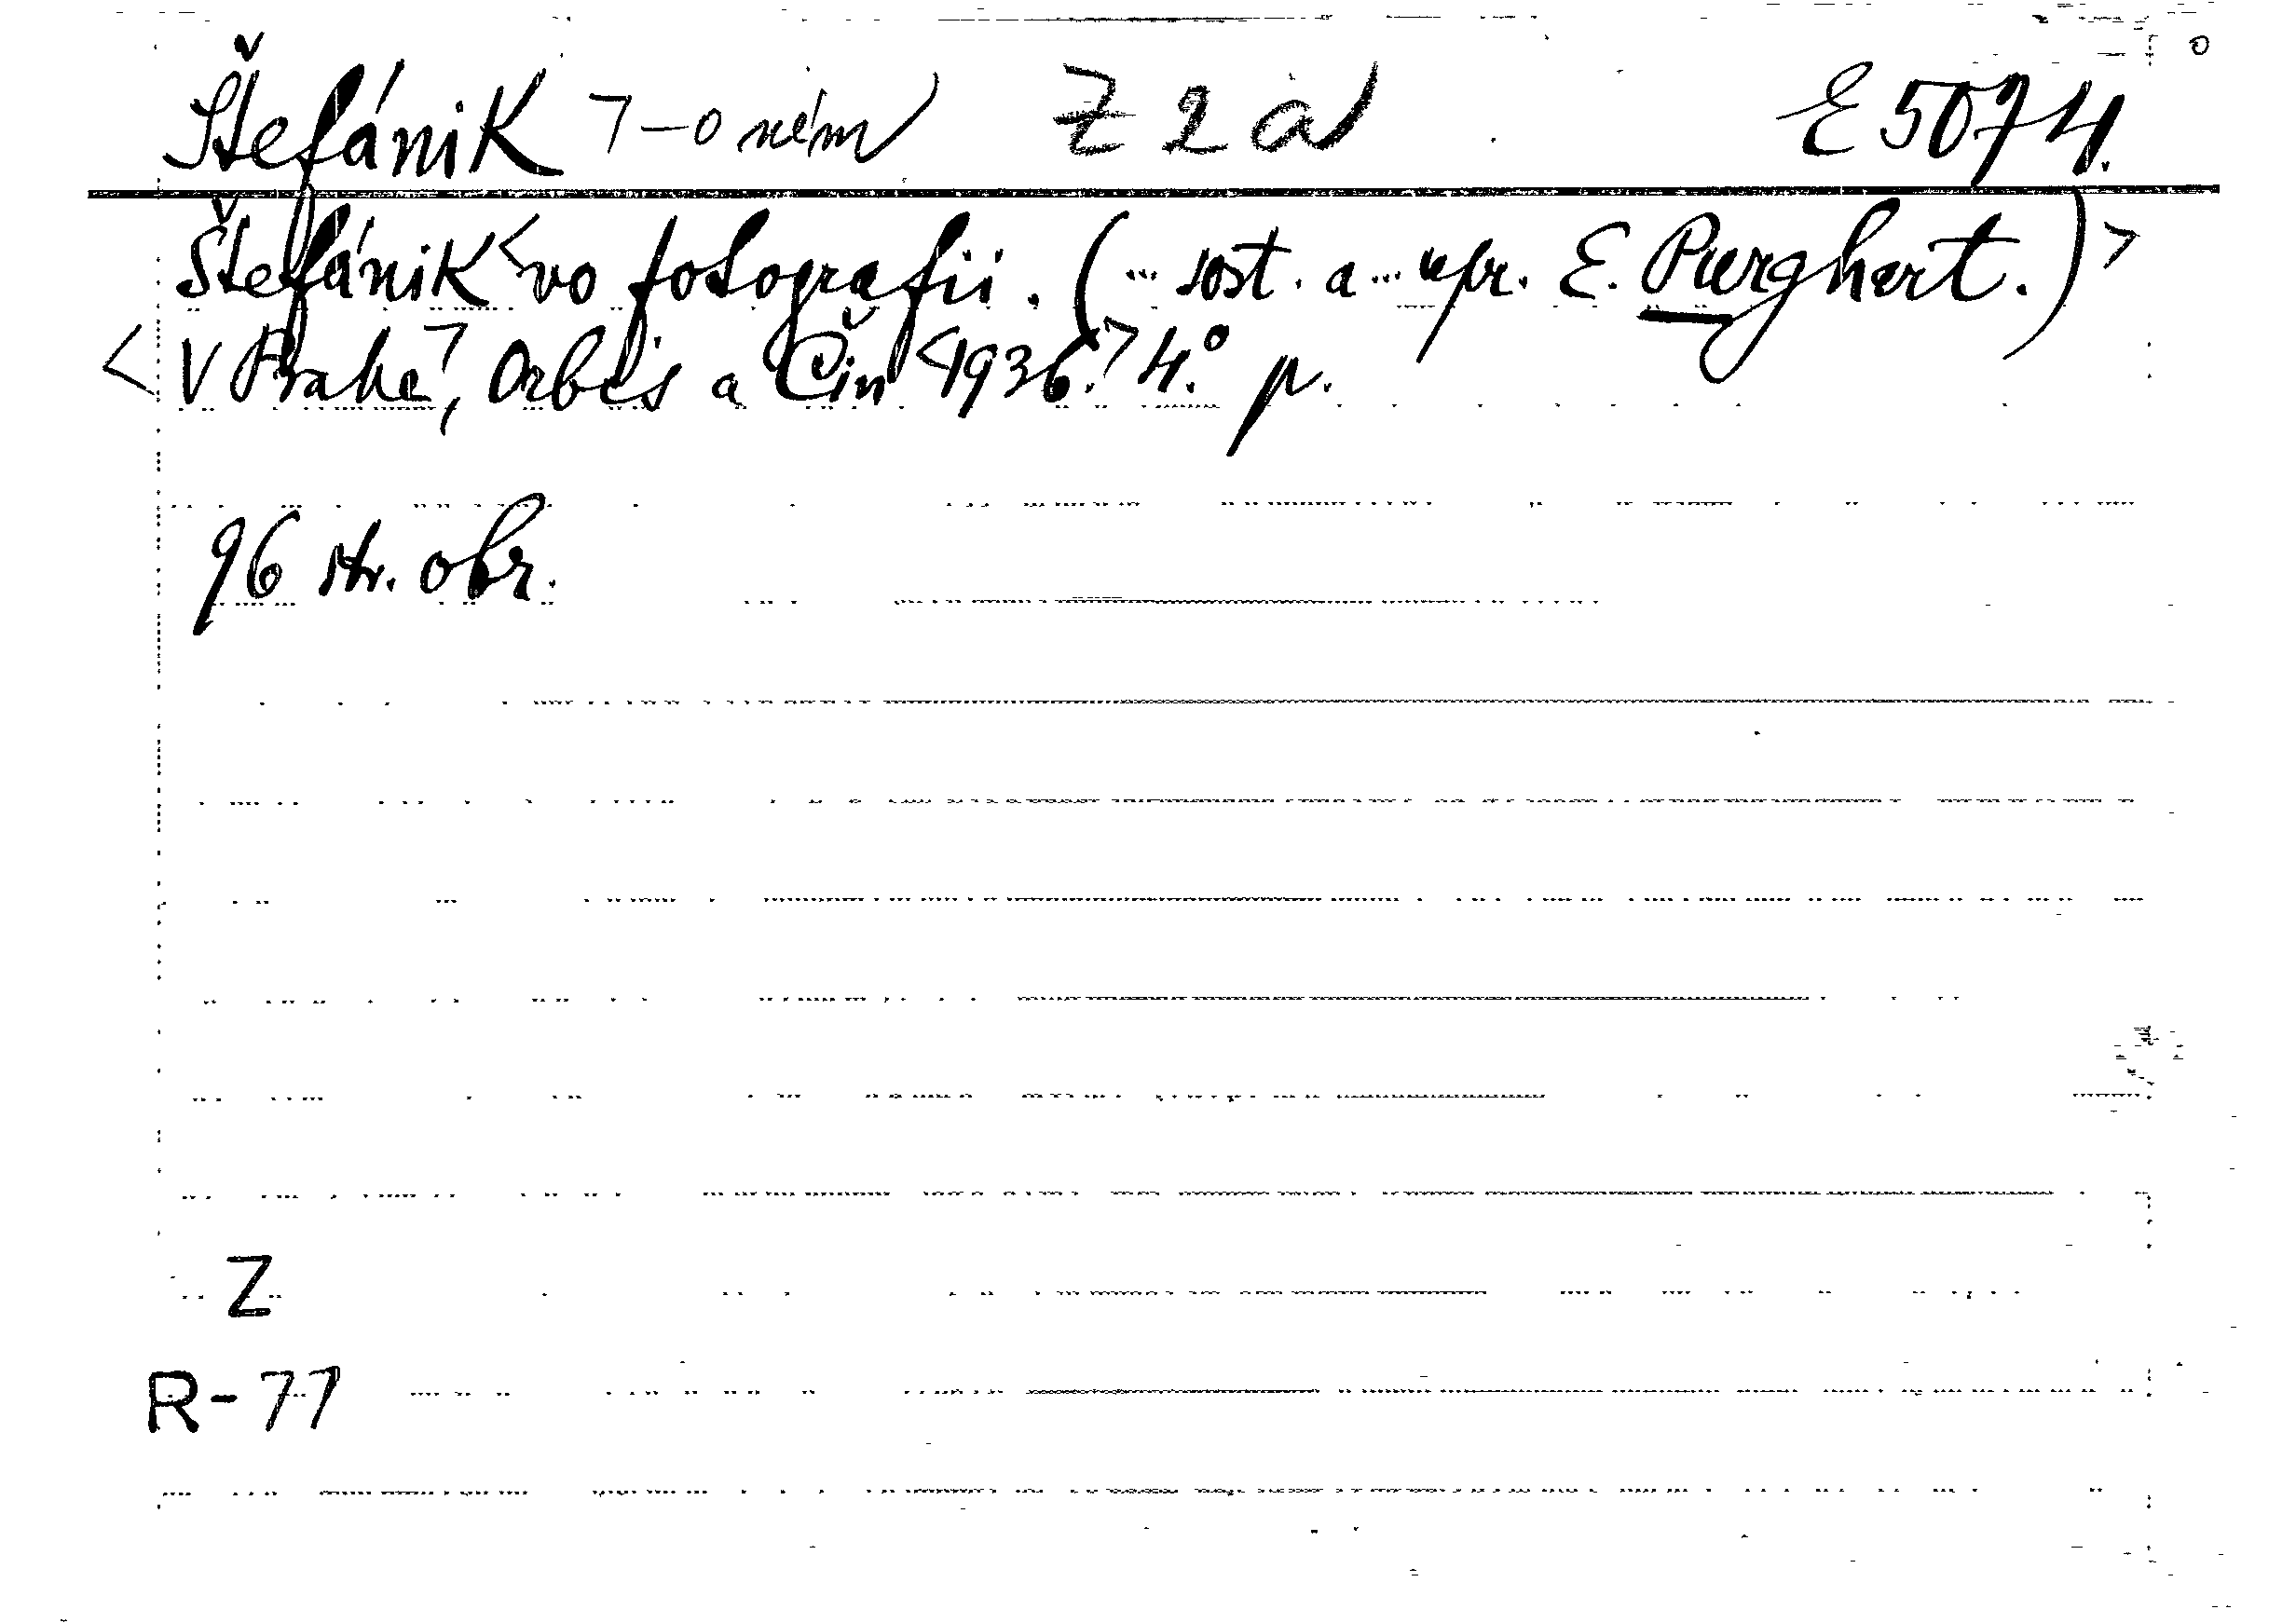 Štefánik > — o ném Z 2 a E 5074.
Štefánik < vo fotografii. (... sost. a ... upr. E. Purghart.) >
< V Prahe >, Orbis a Čin < 1936. > 4.° p.
96 str. obr.
Z
R-77